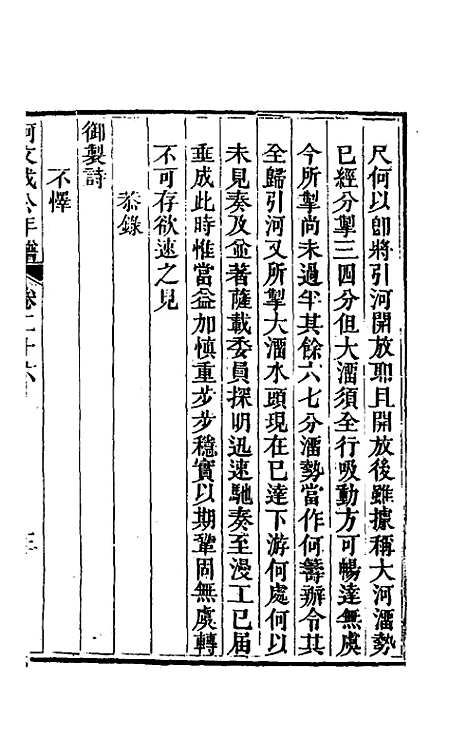 尺何以卽將引河開放耶且開放後雖據稱大河溜勢
已經分掣三四分但大溜須全行吸動方可暢達無虞
今所掣尚未過半其餘六七分溜勢當作何籌辦令其
全歸引河又所掣大溜水頭現在已達下游何處何以
未見奏及並著薩載委員探明迅速馳奏至漫工已届
垂成此時惟當益加慎重步步穩實以期鞏固無虞轉
不可存欲速之見
恭錄
御製詩
不懌
阿文成公年譜 卷二十六 三